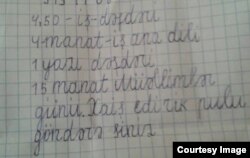 4,50 - iş-dəftəri
4-manat-iş ana dili
1 yazı dəftəri
15 manat Müəllimlər
günü. Xaiş edirik pulu
göndərə siniz
Courtesy Image